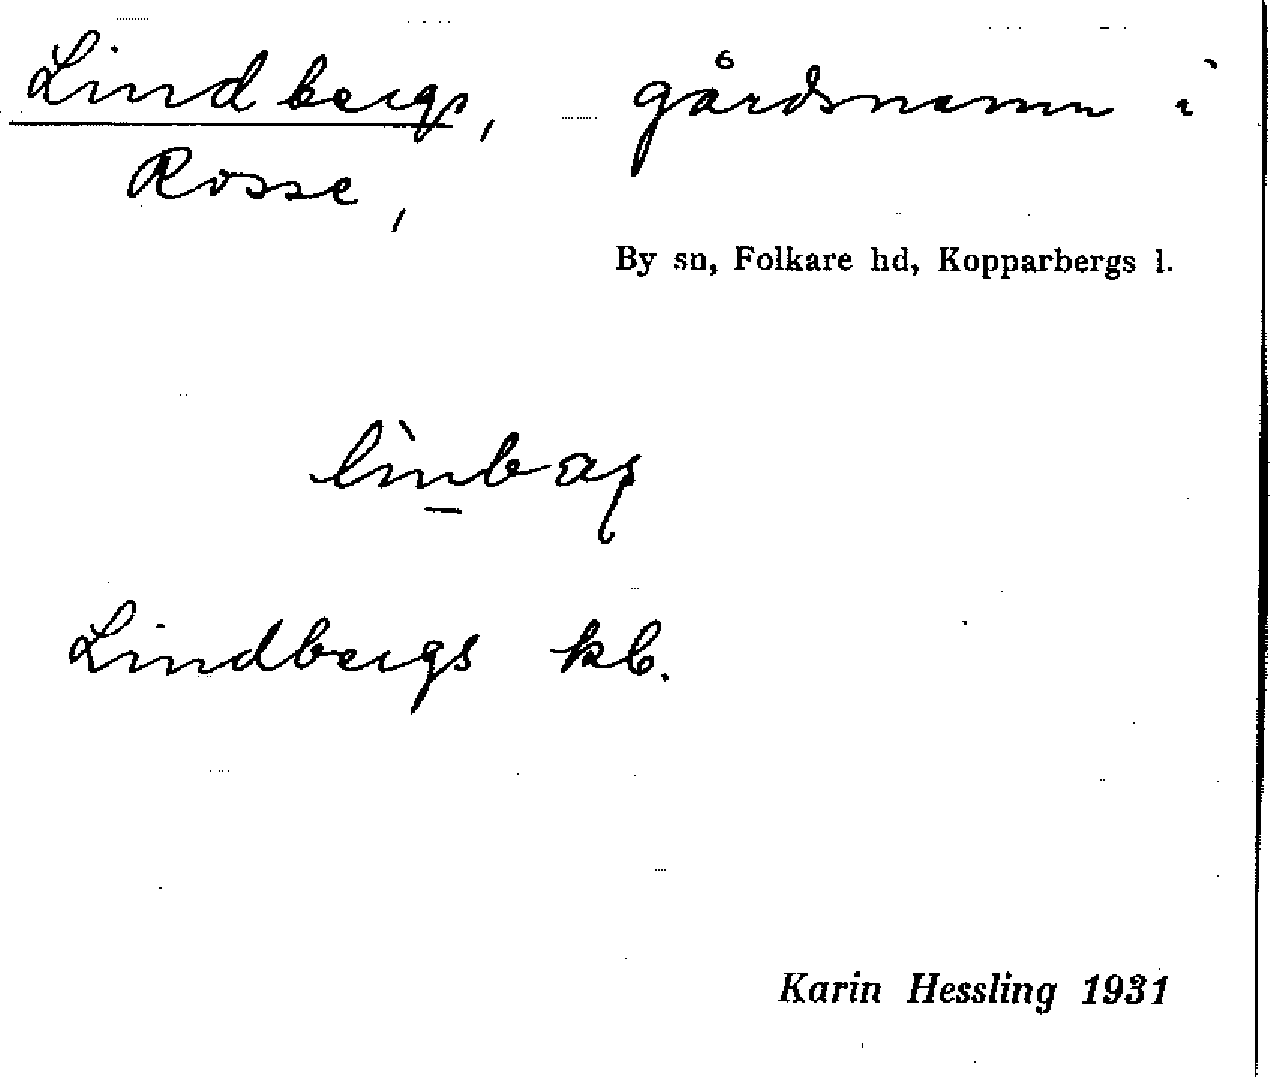 Lindbergs, gårdsnamn i
Rosse,
By sn, Folkare hd, Kopparbergs l.
Lindbergs kb.
Karin Hessling 1931